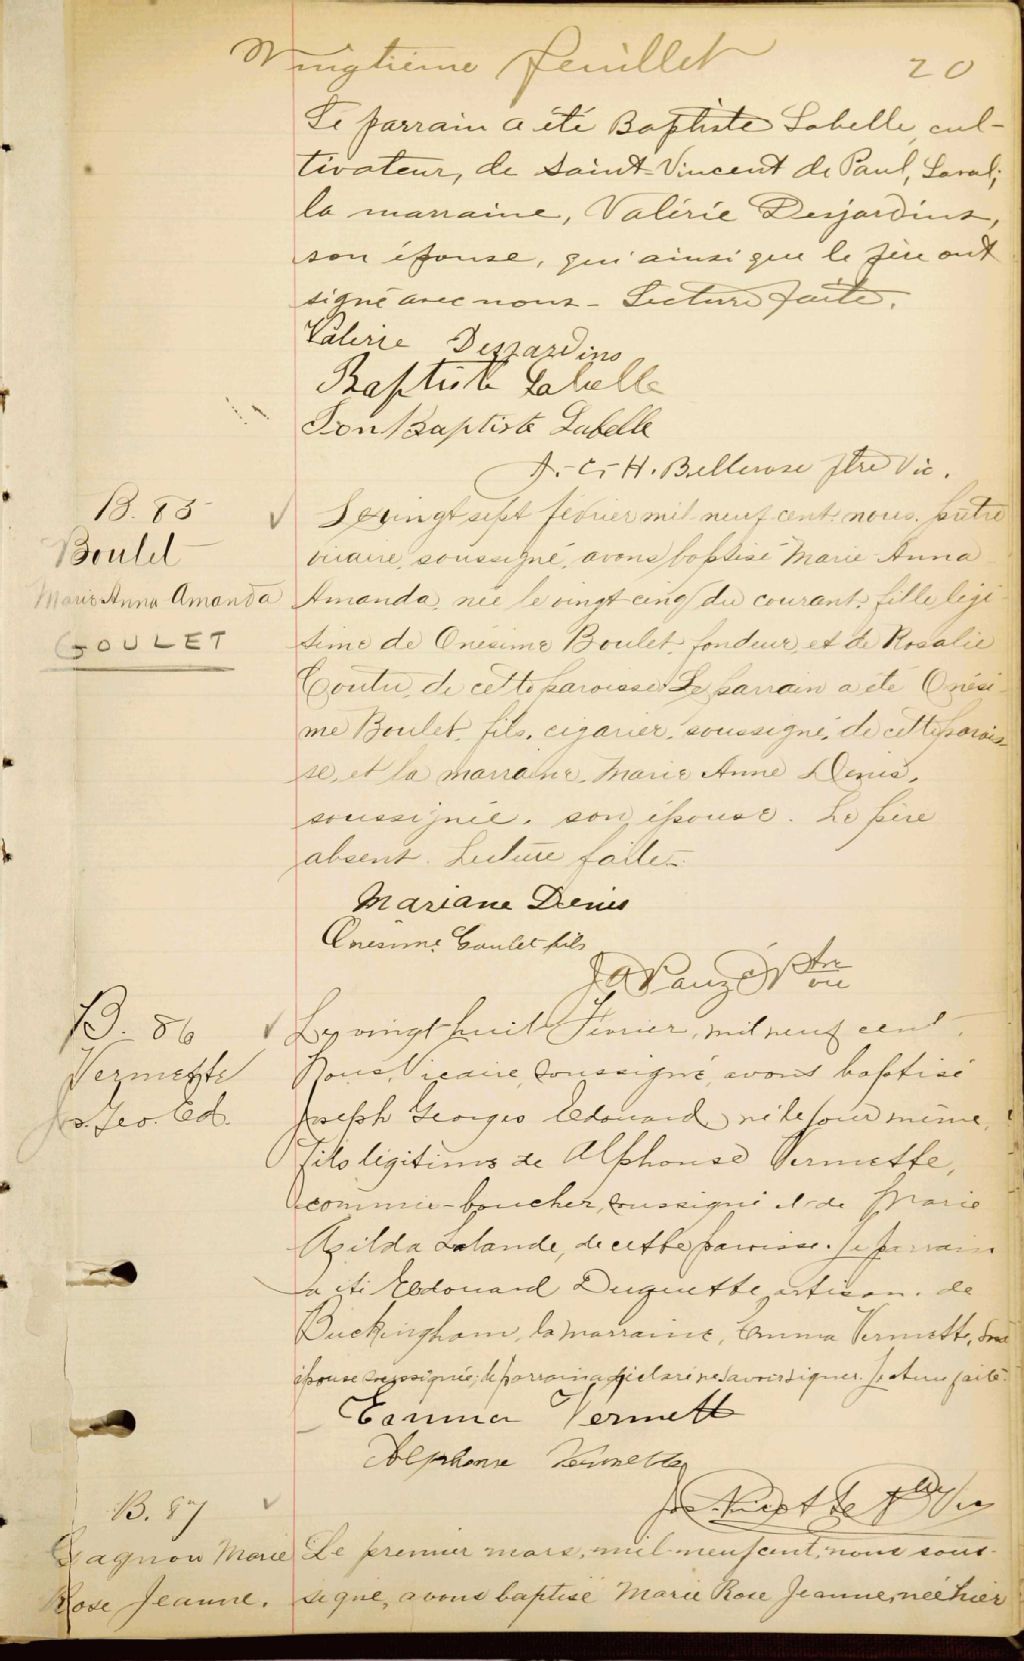 Vingtième feuillet 20
Le parrain a été Baptiste Labelle, cul-
tivateur, de Saint-Vincent de Paul, Laval;
la marraine, Valérie Desjardins,
son épouse, qui ainsi que le père ont
signé avec nous - Lecture faite.
Valerie Desjardins
Baptiste Labelle
Jean Baptiste Labelle
A.-C.-H. Bellerose ptre Vic.
B. 85
Boulet
Marie Anna Amanda
GOULET
Le vingt sept février mil neuf cent, nous, prêtre
vicaire, soussigné, avons baptisé Marie Anna
Amanda, née le vingt cinq du courant, fille légi-
time de Onésime Boulet, fondeur, et de Rosalie
Coutu, de cette paroisse. Le parrain a été Onési-
me Boulet, fils, cigarier, soussigné, de cette parois-
se, et la marraine, Marie Anne Denis,
soussignée, son épouse. Le père
absent. Lecture faite.
Mariane Denis
Onésime Goulet fils
J A Pauzé Ptre vic
B. 86
Vermette
Jos. Geo. Ed.
Le vingt huit Février, mil neuf cent,
Nous, Vicaire, soussigné, avons baptisé
Joseph Georges Edouard, né le jour même,
fils légitime de Alphonse Vermette,
commis-boucher, soussigné et de Marie
Azilda Lalande, de cette paroisse. Le parrain
a été Edouard Duquette, artisan, de
Buckingham, la marraine, Emma Vermette, son
épouse soussignée; le parrain a déclaré ne savoir signer. Lecture faite.
Emma Vermett
Alphonse Vermette
Ptre Vic
B. 87
Gagnon Marie
Rose Jeanne.
Le premier mars, mil-neuf cent, nous sous-
signé, avons baptisé Marie Rose Jeanne, née hier